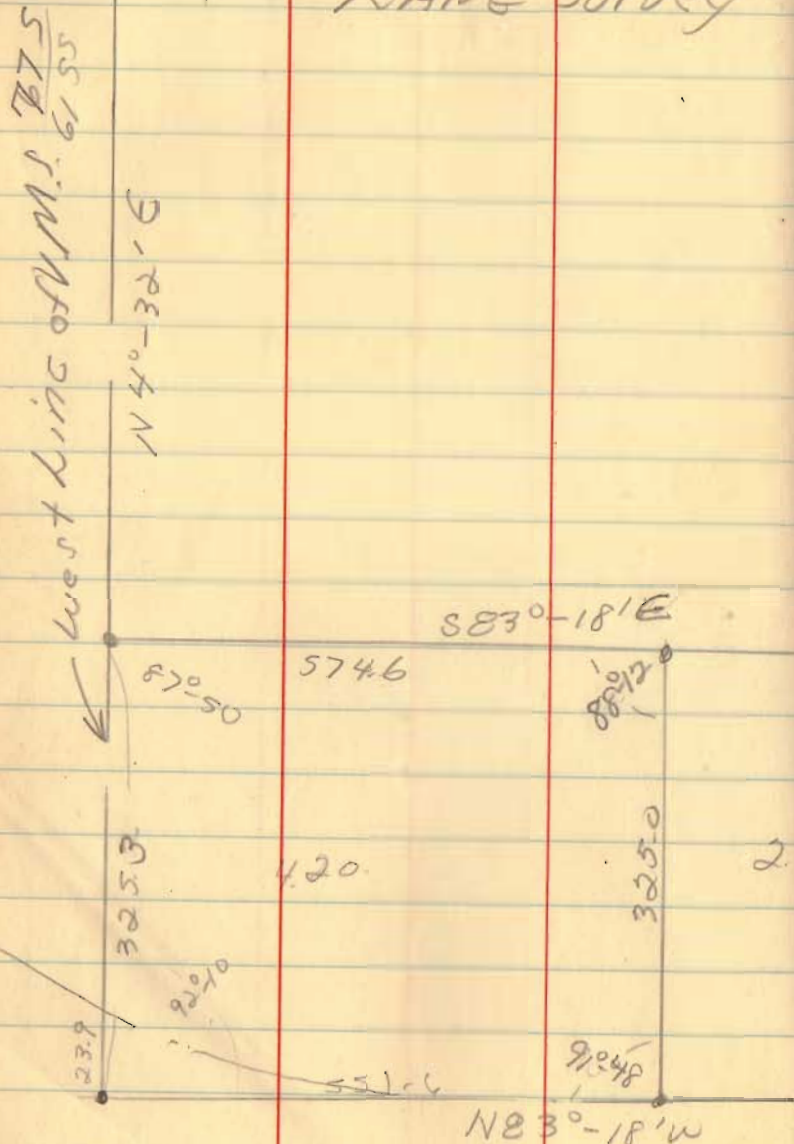 SURVEY
West Line of V.M.S. 675
6155
N 4°-32' E
S83°-18'E
87°-50
574.6
88°-12'
325.3
4.20
325.0
2.
92°-10
23.9
551.6
91°-48
N83°-18'W